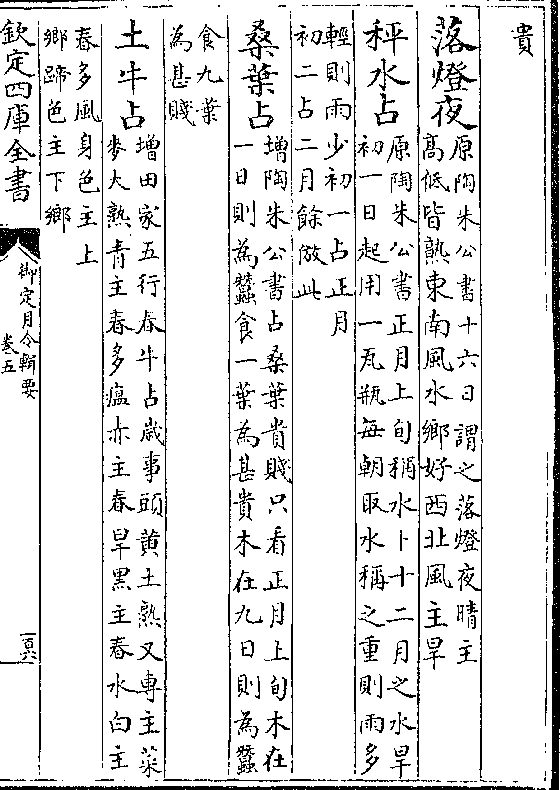 貴
落燈夜
原陶朱公書十六日謂之落燈夜晴主
高低皆熟東南風水鄉好西北風主旱
秤水占
原陶朱公書正月上旬稱水卜十二月之水旱
初一日起用一瓦瓶每朝取水稱之重則雨多
輕則雨少初一占正月
初二占二月餘倣此
桑葉占
增陶朱公書占桑葉貴賤只看正月上旬木在
一日則為蠶食一葉為甚貴木在九日則為蠶
食九葉
為甚賤
土牛占
增田家五行春牛占歲事頭黄主熟又専主菜
麥大熟青主春多瘟亦主春旱黑主春水白主
春多風身色主上
鄉蹄色主下鄉
欽定四庫全書
御定月令輯要
卷五